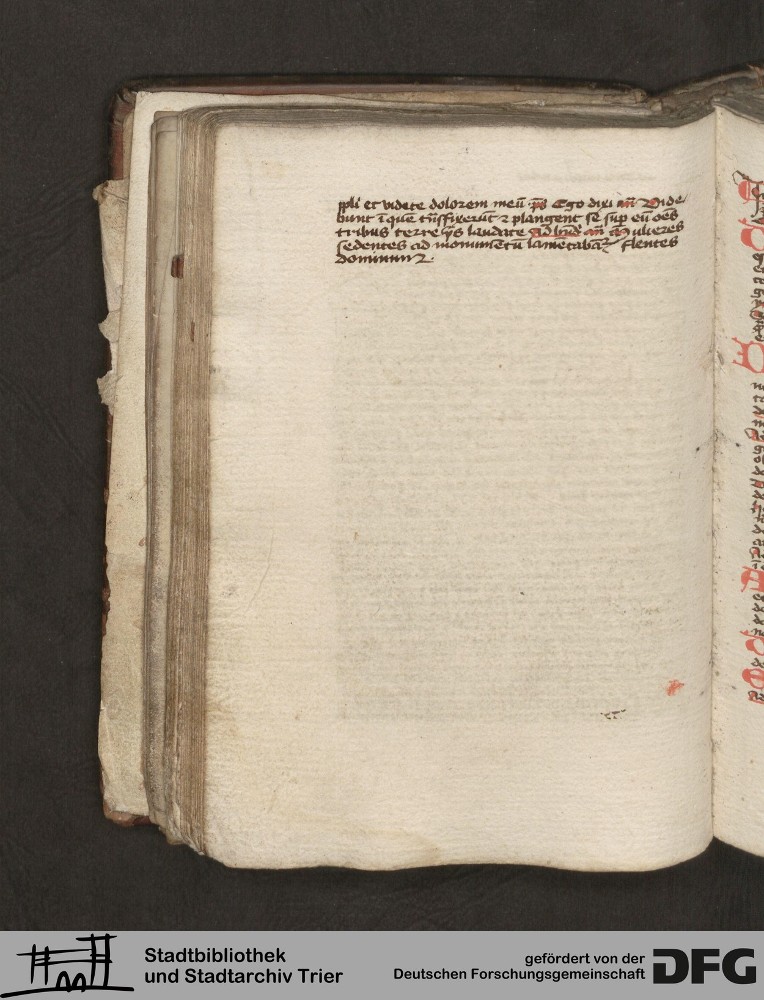 ppli et videte dolorem meū p̄s Ego dixi an̄ Vide
bunt ī quē trāsfixerūt ⁊ plangent se sup eū oēs
tribus terre p̄s laudate Ad bn̄d an̄ Mulieres
sedentes ad monumētū lamētabāt flentes
dominum
Stadtbibliothek
und Stadtarchiv Trier
gefördert von der
Deutschen Forschungsgemeinschaft
DFG